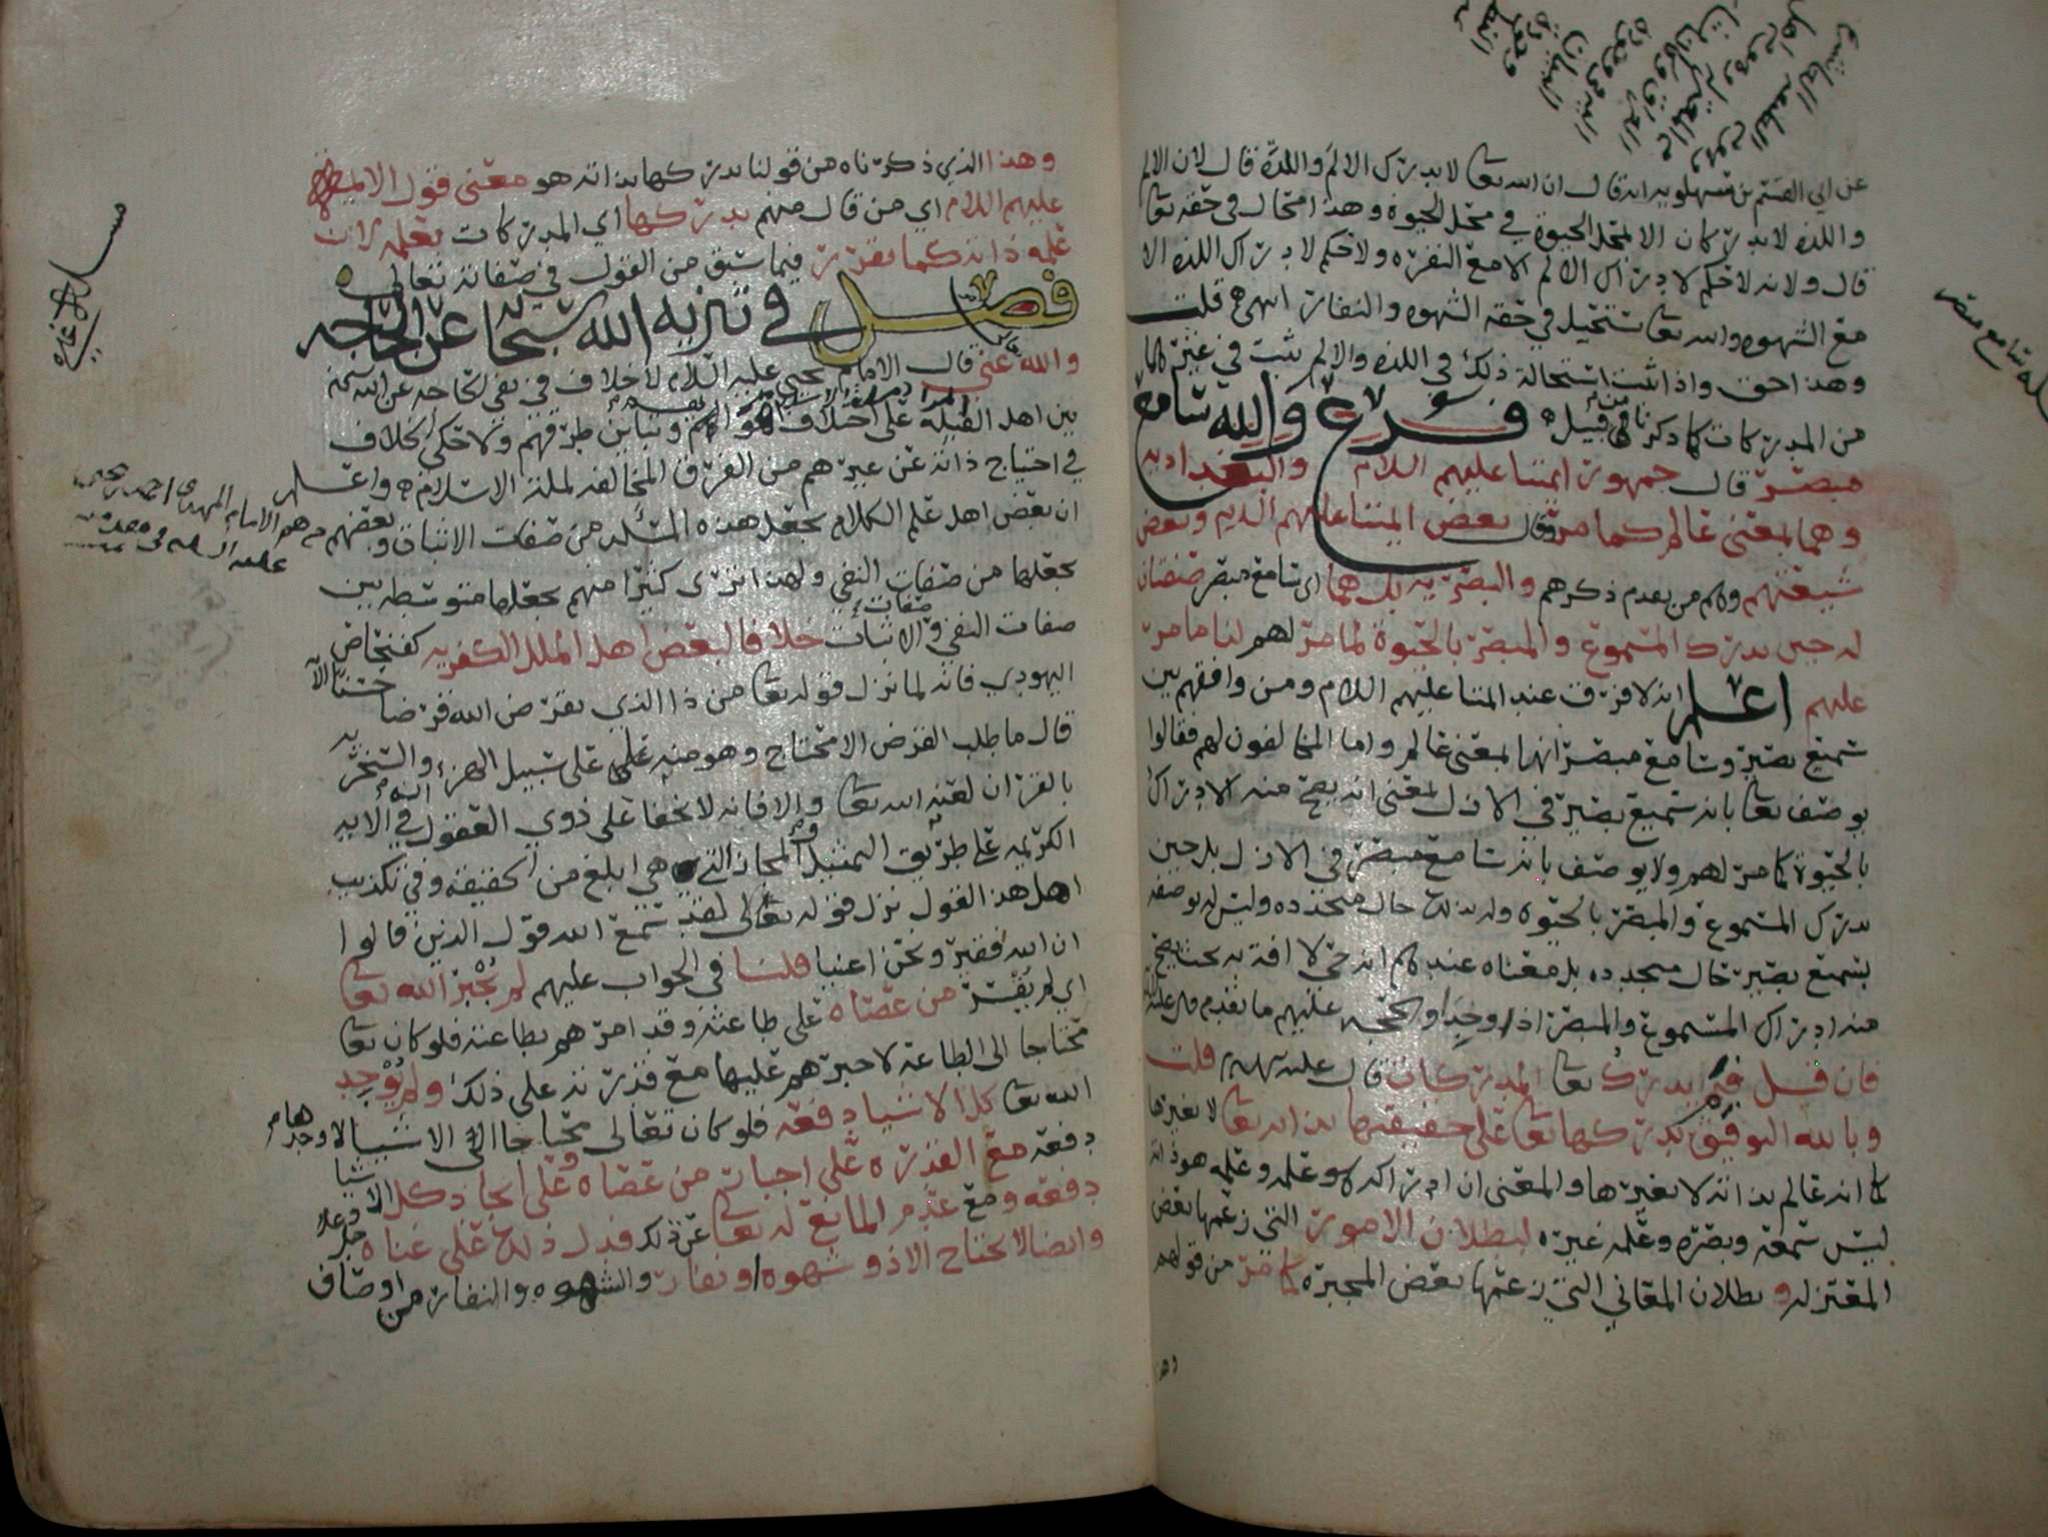 عن ابي القسم بن سهلويه انه قال ان الله تعا لا يدرك الالم واللذه قال لان الالم
واللذه لا يدركان الا بمحل الحيوة في محل الحيوة وهذا محال في حقه تعا
قال ولانه لا حكم لادراك الالم الا مع النفره ولا حكم لادراك اللذه الا
مع الشهوه والله تعا يستحيل في حقه الشهوه والنفار انتهى قلت
وهذا حق واذا ثبت استحالة ذلك في اللذه والالم ثبت في غيرهما
من المدركات كما ذكرنا فرع والله سامع
مبصر قال جمهور ائمتنا عليهم السلام والبغداديه
وهما بمعنى عالم كما مر وقال بعض ائمتنا عليهم السلام وبعض
شيعتهم وهم من تقدم ذكرهم والبصريه بل هما اي سامع مبصر صفتان
له حين يدرك المسموع والمبصر بالحيوة لما مر لهم لنا ما مر
عليهم اعلم انه لا فرق عند ائمتنا عليهم السلام ومن وافقهم بين
سميع بصير وسامع مبصر انها بمعنى عالم واما المخالفون لهم فقالوا
يوصف تعا بانه سميع بصير في الازل بمعنى انه يصح منه الادراك
بالحيوة كما مر لهم ولا يوصف بانه سامع مبصر في الازل بل حين
يدرك المسموع والمبصر بالحيوه وله بذلك حال متجدده وليس له بوصفه
بسميع بصير حال متجدده بل معناه عندهم انه حي لا افة به بحيث يصح
منه ادراك المسموع والمبصر اذا وجد والحجه عليهم ما تقدم
فان قيل فبم يدرك تعا المدركات قال عليه السلام قلت
وبالله التوفيق يدركها تعا على حقيقتها بذاته تعا لا بغيرها
كما انه عالم بذاته لا بغيرها والمعنى ان ادراكه هو علمه وعلمه هو ذاته
ليس سمعه وبصره وعلمه غيره لبطلان الامور التي زعمها بعض
المعتزله وبطلان المعاني التي زعمها بعض المجبره كما مر من قولهم
وهذا
سامع مبصر
وهذا الذي ذكرناه من قولنا يدركها بذاته هو معنى قول الائمه
عليهم السلام اي من قال منهم يدركها اي المدركات بعلمه لان
علمه ذاته كما تقرر فيما سبق من القول في صفاته تعالى
فصل في تنزيه الله سبحانه عن الحاجه
والله غني قال الامام يحيى عليه السلام لا خلاف في نفي الحاجه عن الله
بين اهل القبله على اختلاف اهوائهم وتباين طرقهم ولا حكي الخلاف
في احتياج ذاته عن غيرهم من الفرق المخالفه لملة الاسلام واعلم
ان بعض اهل علم الكلام يجعل هذه المسئله من صفات الاثبات وبعضهم
يجعلها من صفات النفي ولهذا ترى كثيرا منهم يجعلها متوسطه بين
صفات النفي وصفات الاثبات خلافا لبعض اهل الملل الكفريه كفنحاص
اليهودي فانه لما نزل قوله تعا من ذا الذي يقرض الله قرضا حسنا الآية
قال ما طلب القرض الا محتاج وهو منه على سبيل الهزء والسخريه
بالقران لعنه الله تعا والا فانه لا يخفا على ذوي العقول ان الايه
الكريمه على طريق التمثيل والمجاز التي هي ابلغ من الحقيقه وفي تكذيب
اهل هذا القول نزل قوله تعالى لقد سمع الله قول الذين قالوا
ان الله فقير ونحن اغنيا قلنا في الجواب عليهم لم يجبر الله تعا
اي لم يقسر من عصاه على طاعته وقد امرهم بطاعته فلو كان تعا
محتاجا الى الطاعة لاجبرهم عليها مع قدرته على ذلك ولم يوجد
الله تعا كل الاشيا دفعه فلو كان تعالى محتاجا الى الاشيا لاوجدها
دفعه مع القدره على اجبار من عصاه وعلى ايجاد كل الاشيا
دفعه ومع عدم المانع له تعا عن ذلك فدل ذلك على غناه
وايضا لا يحتاج الا ذو شهوه او نفار والشهوه والنفار من اوصاف
هو الامام المهدي احمد بن يحيى
عليه السلام